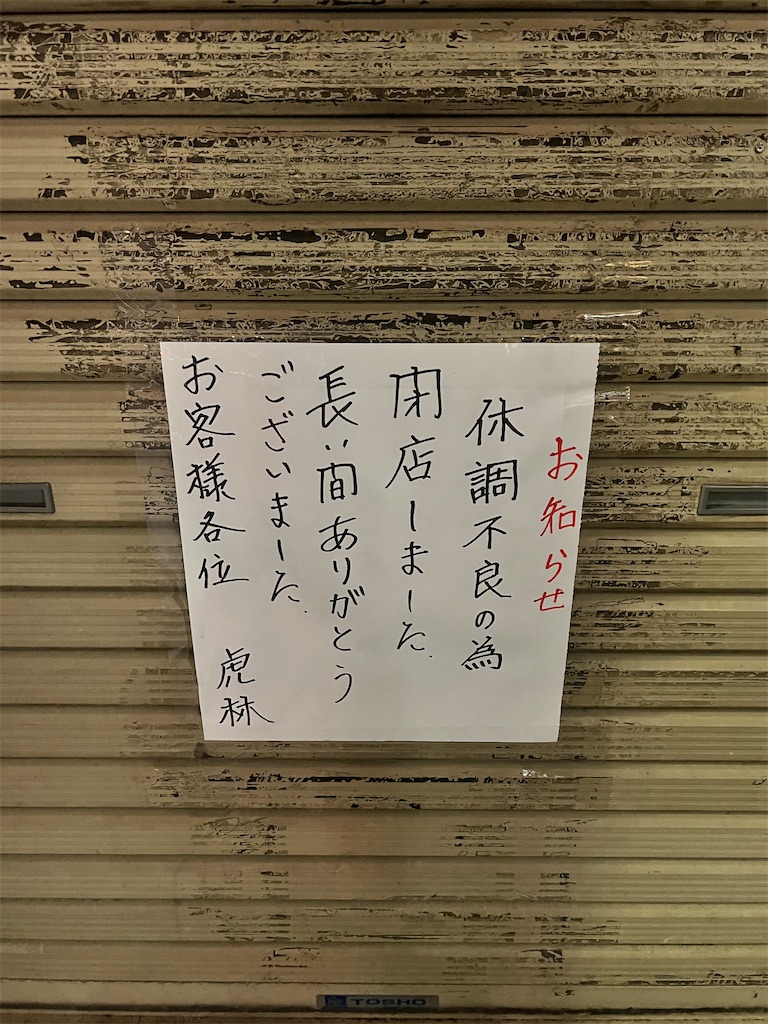 お知らせ
体調不良の為
閉店しました.
長い間ありがとう
ございました.
お客様各位 虎林
TOSHO